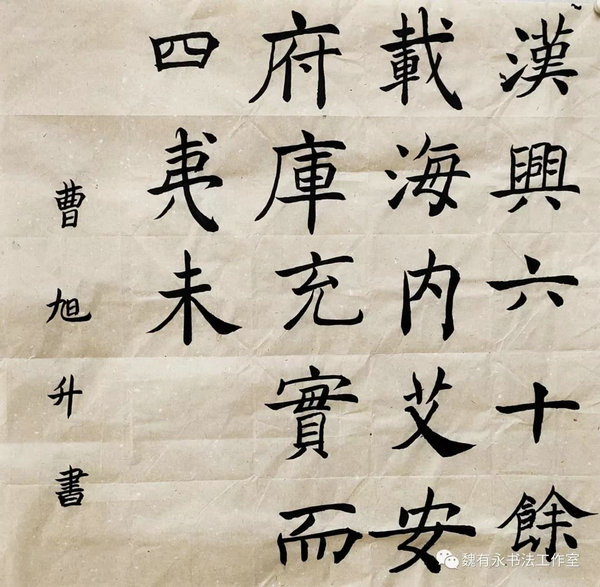 漢興六十餘
載海内艾安
府庫充實而
四夷未
曹旭升書
魏有永书法工作室